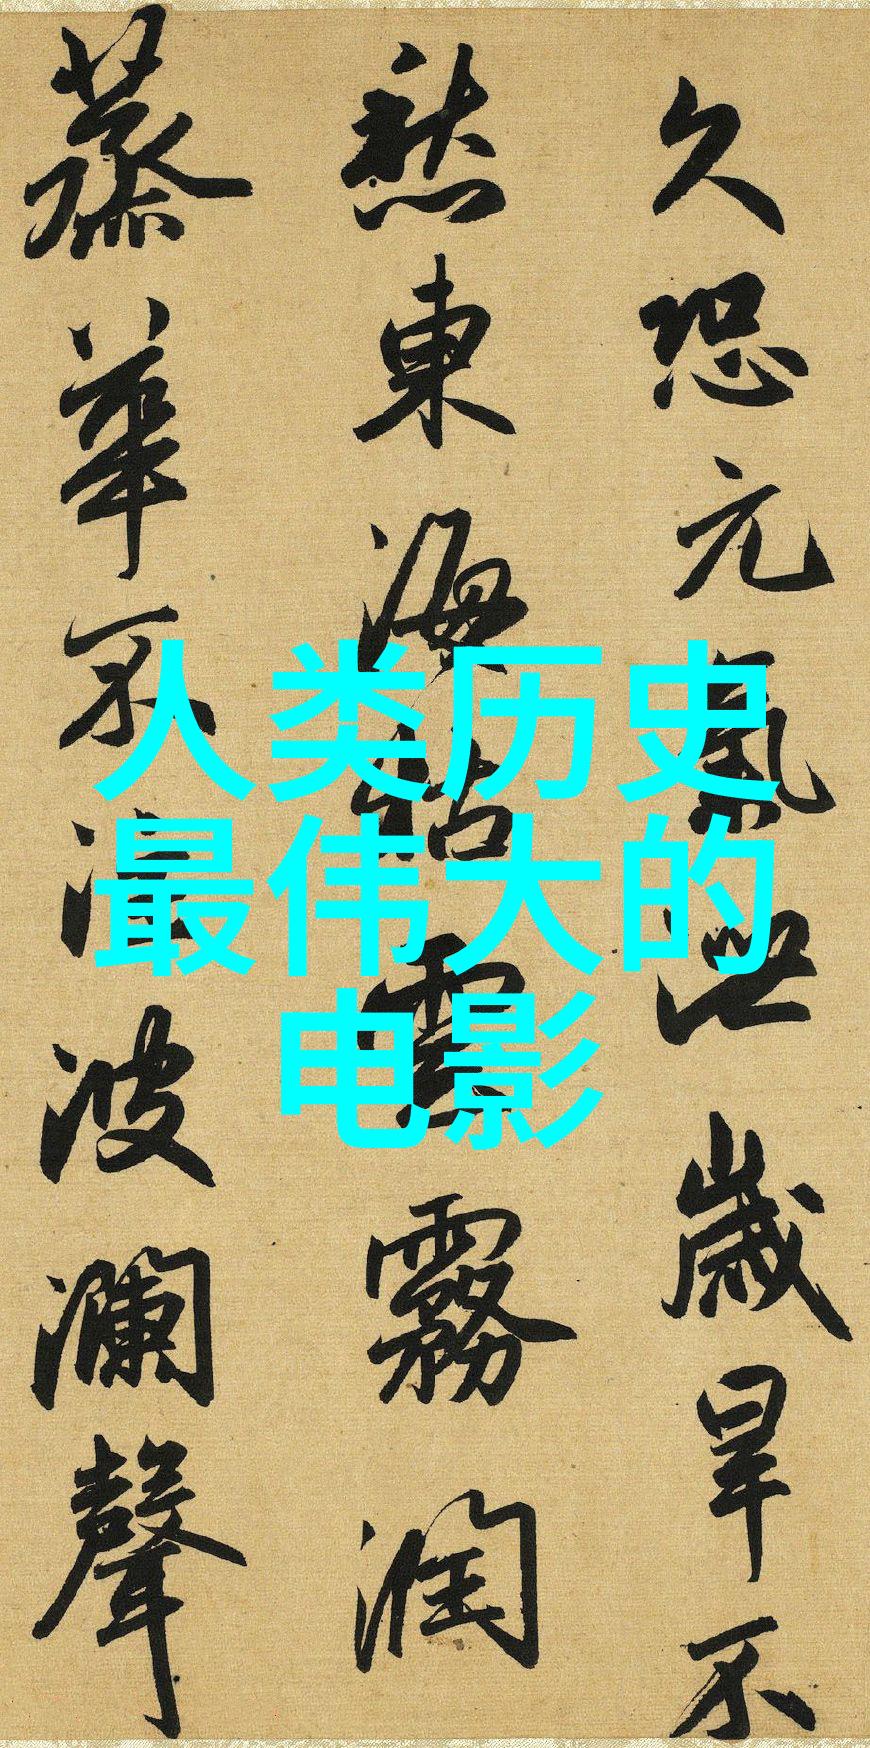 久恐元氣泄歲旱不
愁東海枯雲霧潤
蒸華不注波瀾聲
人类历史
最伟大的
电影